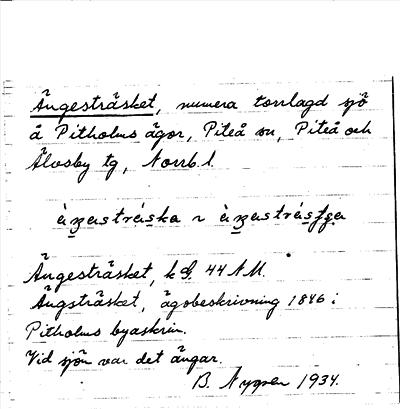 Ängesträsket, numera torrlagd sjö
å Pitholms ägor, Piteå sn, Piteå och
Älvsby tg, Norrb. l.
Ängesträsket, k 44 NM.
Ängsträsket, ägobeskrivning 1846 i
Pitholms byaskrin.
Vid sjön var det ängar.
B. Nygren 1934.